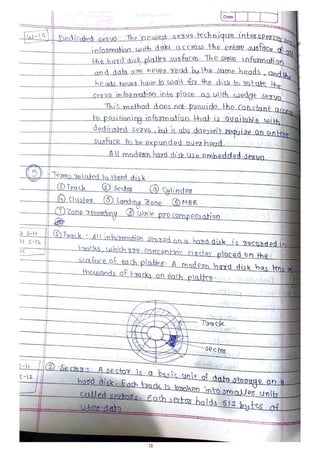 Date
W-10
Dedicated servo The newest servo technique intersperces servo
information with data accross the entire surface of all
the hard disk platter surfaces. The servo information
and data are never read by the same heads, and the
heads never have to wait for the disk to rotate the
servo information into place as with wedge servo.
This method does not provide the constant access
to positioning information that is available with
dedicated servo, but it also doesn't require an entire
surface to be expanded overhead.
All modern hard disk use embedded servo.
Terms related to Hard disk
① Track ② Sector ③ Cylinder
④ Cluster ⑤ Landing Zone ⑥ MBR
⑦ Zone recording ⑧ write pre compensation
① Track : All information stored on a hard disk is recorded in
tracks, which are concentric circles placed on the
surface of each platter. A modern hard disk has tens of
thousands of tracks on each platter.
Track
sector
② Sector : A sector is a basic unit of data storage on a
hard disk. Each track is broken into smaller units
called sectors. Each sector holds 512 bytes of
user data